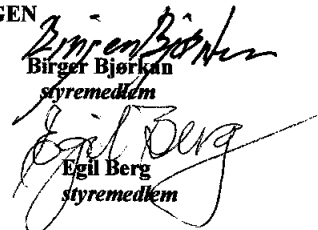 GEN
Birger Bjørkan
Birger Bjørkan
styremedlem
Egil Berg
Egil Berg
styremedlem